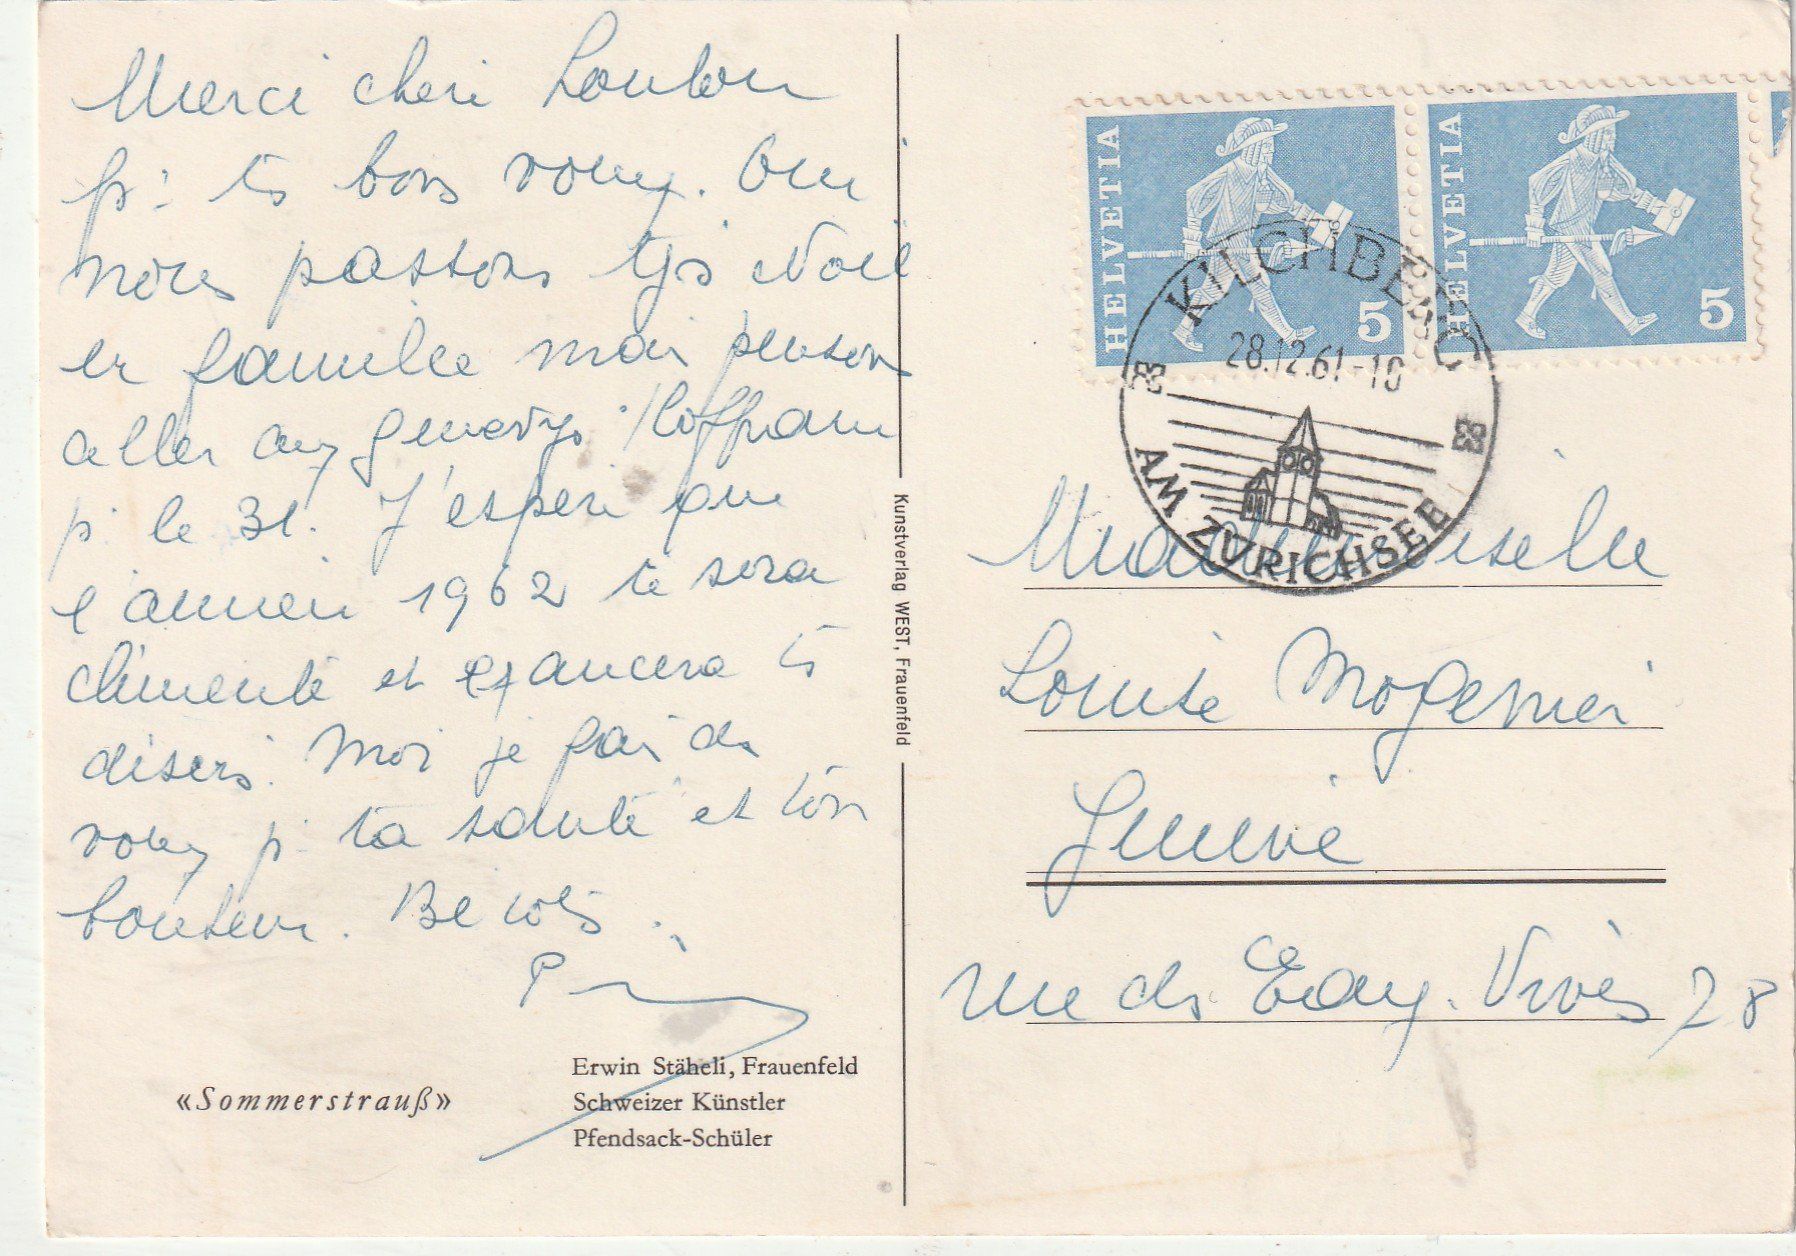 Merci chère Loulou
p. tes bons voeux. Oui
nous passons tjs Noël
en famille mais pensons
aller
p. le 31. J'espère que
l'année 1962 te sera
clémente et exaucera tes
désirs. Moi je fais des
voeux p. ta santé et ton
bonheur.
Erwin Stäheli, Frauenfeld
«Sommerstrauß»
Schweizer Künstler
Pfendsack-Schüler
Kunstverlag WEST, Frauenfeld
HELVETIA 5
HELVETIA 5
KILCHBERG
28.12.61-10
AM ZÜRICHSEE
Mademoiselle
Louise
Genève
rue des Eaux-Vives 78